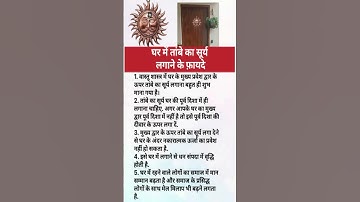 घर में तांबे का सूर्य
लगाने के फ़ायदे
1. वास्तु शास्त्र में घर के मुख्य प्रवेश द्वार के
ऊपर तांबे का सूर्य लगाना बहुत ही शुभ
माना गया है।
2. तांबे का सूर्य घर की पूर्व दिशा में ही
लगाना चाहिए, अगर आपके घर का मुख्य
द्वार पूर्व दिशा में नहीं है तो इसे पूर्व दिशा की
दीवार के ऊपर लगा दें.
3. मुख्य द्वार के ऊपर तांबे का सूर्य लगा देने
से घर के अंदर नकारात्मक ऊर्जा का प्रवेश
नहीं हो सकता है.
4. इसे घर में लगाने से धन संपदा में वृद्धि
होती है.
5. घर में रहने वाले लोगों का समाज में मान
सम्मान बढ़ता है और समाज के प्रसिद्ध
लोगों के साथ मेल मिलाप भी बढ़ने लगता
है.